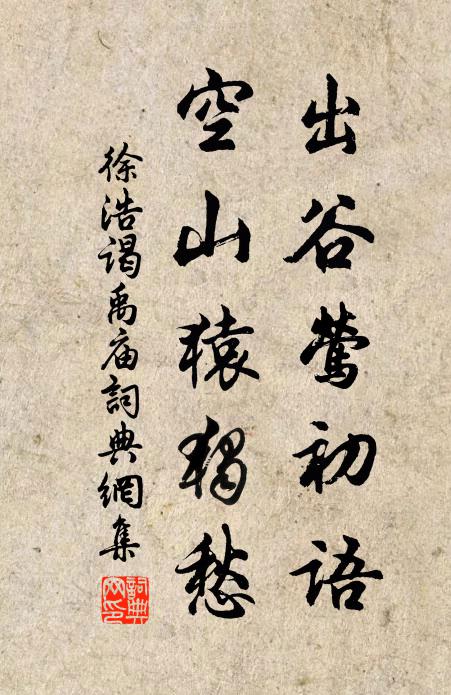 出谷莺初语
空山猿独愁
徐浩谒禹庙詞典網集
詞典网印